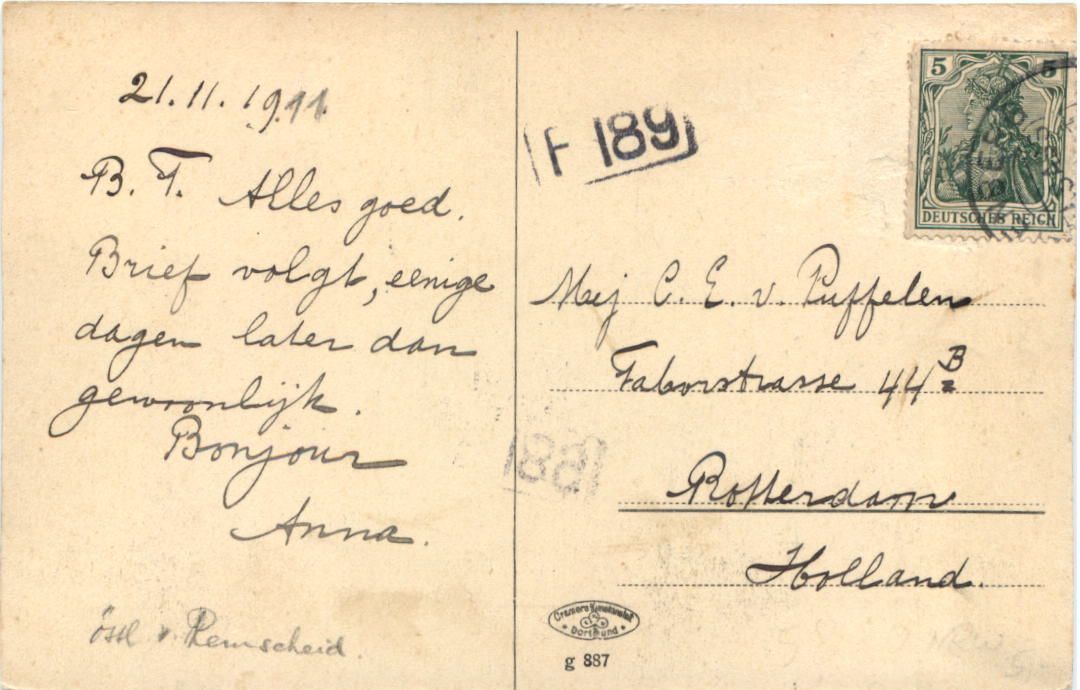 21.11.1911
B. T. Alles goed.
Brief volgt, eenige
dagen later dan
gewoonlijk.
Bonjour
Anna.
östl v. Remscheid.
F 189
5 5
DEUTSCHES REICH
Mej C. E. v. Puffelen
Taborstrasse 44B
Rotterdam
Holland.
189
Cramers Kunstanstalt
Dortmund
g 887